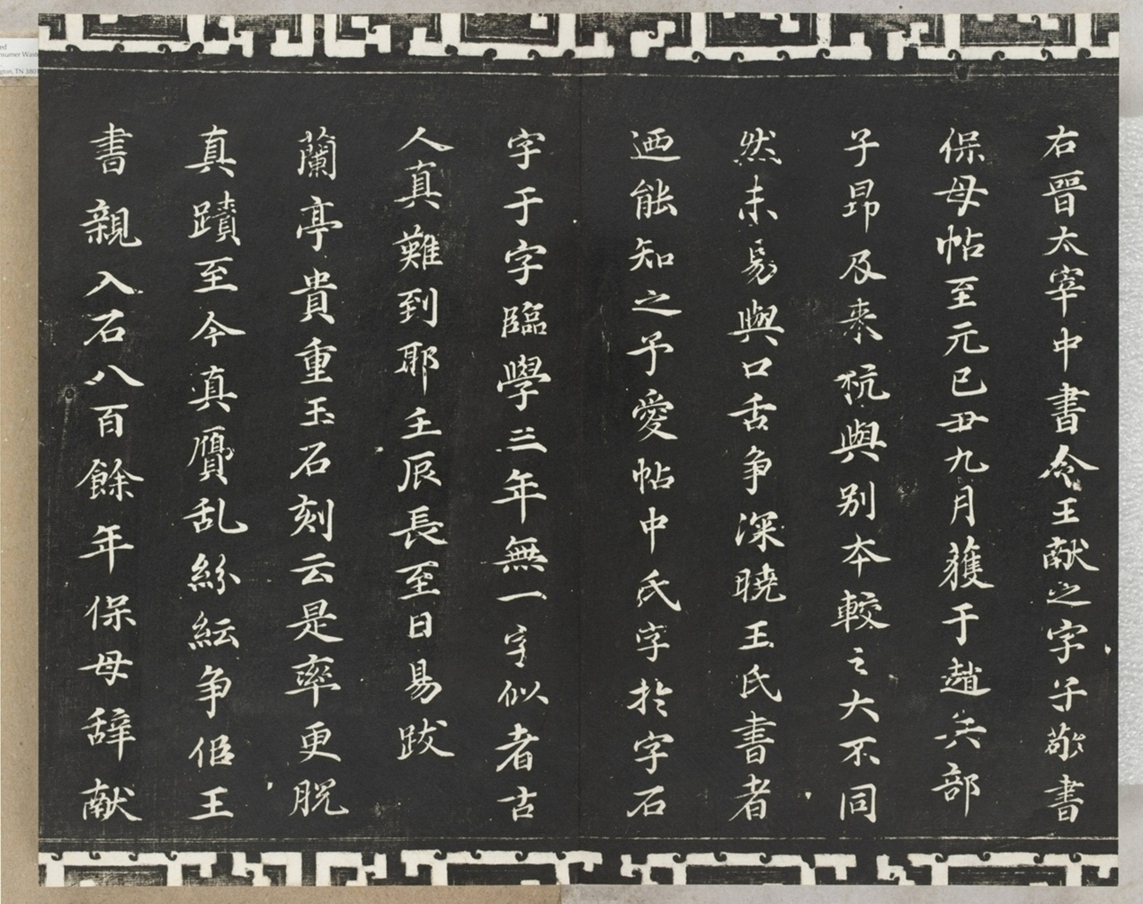 右晉太宰中書令王献之字子敬書
保母帖至元已丑九月獲于趙兵部
子昂及来杭與别本較之大不同
然未易與口舌争深曉王氏書者
迺能知之予愛帖中氏字於字石
字于字臨學三年無一字似者古
人真難到耶壬辰長至日易跋
蘭亭貴重玉石刻云是率更脱
真蹟至今真贋乱紛紜争佀王
書親入石八百餘年保母辞献